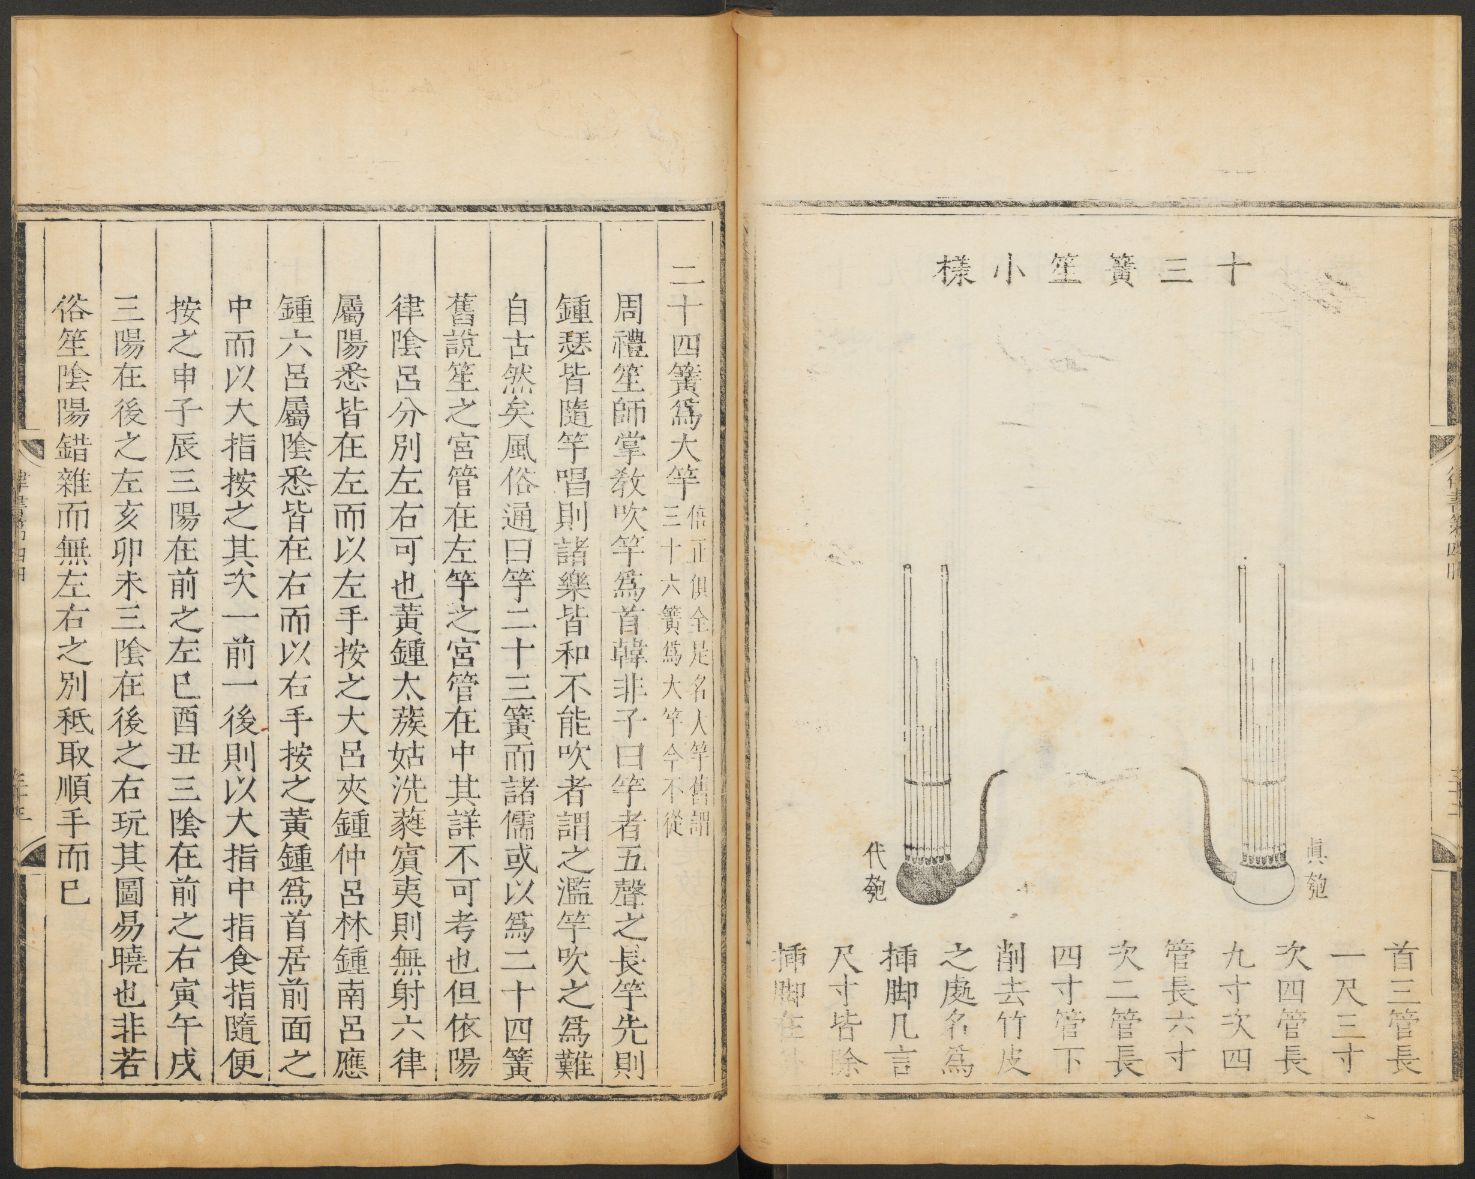 十三簧笙小様
眞匏
代匏
首三管長
一尺三寸
次四管長
九寸次四
管長六寸
次二管長
四寸管下
削去竹皮
之處名為
揷脚凡言
尺寸皆除
揷脚在外
二十四簧爲大竽
倍正俱全是名人竽舊謂
三十六簧爲大竽今不從
周禮笙師掌敎吹竽爲首韓非子曰竽者五聲之長竽先則
鍾瑟皆隨竽唱則諸樂皆和不能吹者謂之濫竽吹之爲難
自古然矣風俗通曰竽二十三簧而諸儒或以爲二十四簧
舊説笙之宮管在左竽之宮管在中其詳不可考也但依陽
律陰呂分別左右可也黃鍾太蔟姑洗蕤賓夷則無射六律
屬陽悉皆在左而以左手按之大呂夾鍾仲呂林鍾南呂應
鍾六呂屬陰悉皆在右而以右手按之黃鍾爲首居前面之
中而以大指按之其次一前一後則以大指中指食指隨便
按之申子辰三陽在前之左巳酉丑三陰在前之右寅午戌
三陽在後之左亥卯未三陰在後之右玩其圖易曉也非若
俗笙陰陽錯雜而無左右之別秪取順手而已